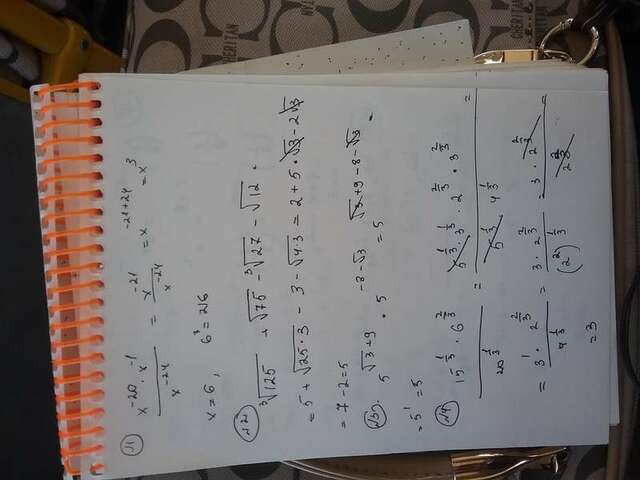 √1
x^-20 · x^-1 / x^-24 = x^-21 / x^-24 = x^-21+24 = x^3
x = 6, 6^3 = 216
√2
∛125 + √75 - ∛27 - √12 =
= 5 + √25·3 - 3 - √4·3 = 2 + 5·√3 - 2√3
= 7 - 2 = 5
√3 5^√3+9 · 5^-8-√3 = 5^√3+9-8-√3 =
= 5^1 = 5
√4
15^1/3 · 6^2/3 / 20^1/3 = 5^1/3 · 3^1/3 · 2^2/3 · 3^2/3 / 5^1/3 · 4^1/3 =
= 3^1 · 2^2/3 / 4^1/3 = 3 · 2^2/3 / (2^2)^1/3 = 3 · 2^2/3 / 2^2/3 =
= 3
CHERITAN
CHERITAN